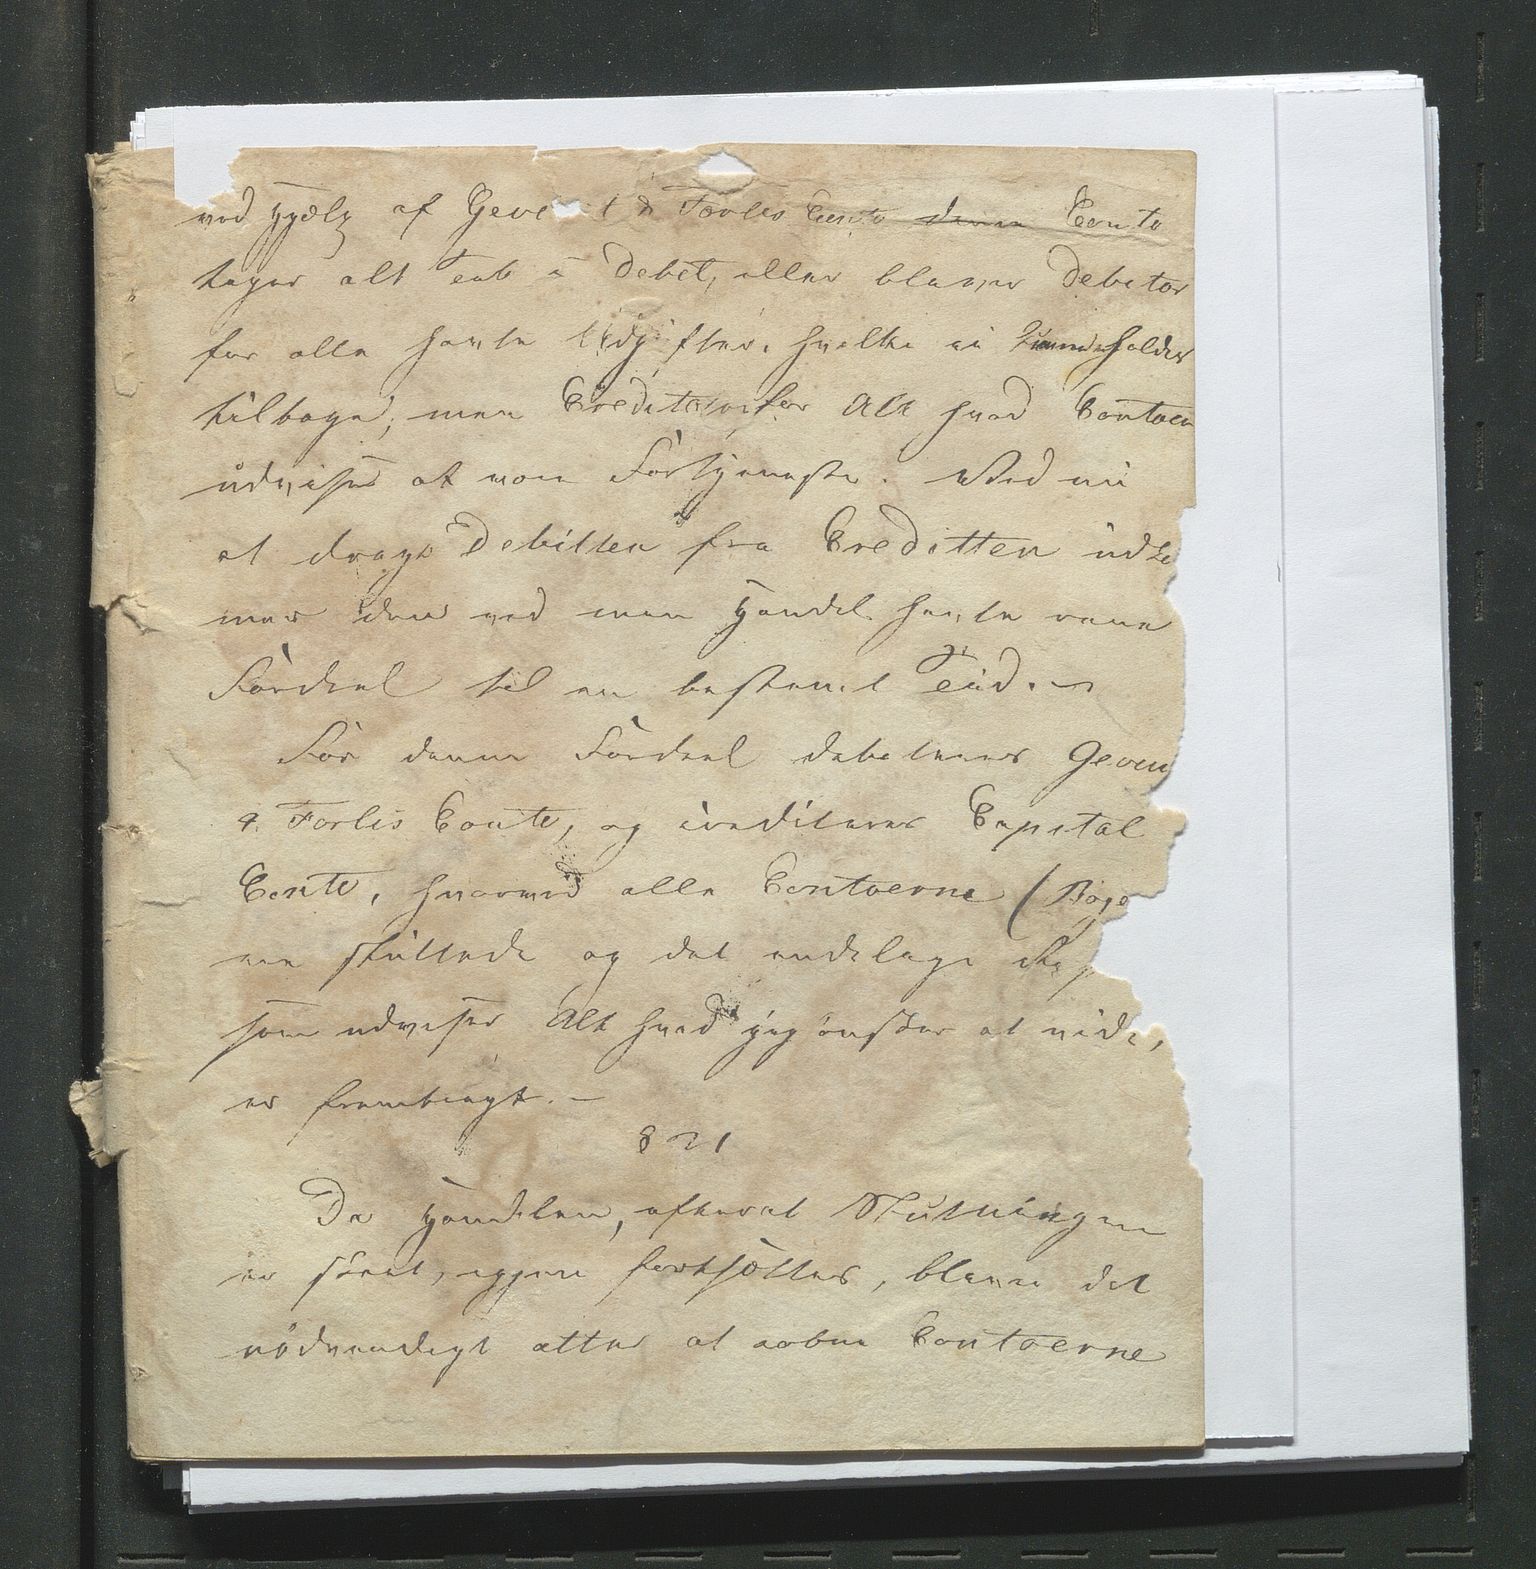 ved Hjælp af Gevi t & Forlis Conto denne Conto
tager alt Tab i Debet, eller bliver Debitor
for alle havte Udgifter, hvilke ei indeholdes
tilbage, men Creditor for Alt hvad Contoen
udviser at være Fortjeneste. Ved nu
at drage Debitten fra Creditten udko
mer den ved min Handel havte rene
Fordeel til en bestemt Tiid. –
For denne Fordeel debiteres Gevin
& Forlis Conto, og crediteres Capital
Conto, hvormed alle Contoerne (Bøge
ere sluttede og det endelige
som udviser Alt hvad jeg ønsker at vide,
er frembragt. –
§ 21
Da Handelen, efterat Slutningen
er skeet, igjen fortsættes, bliver det
nødvendigt atter at aabne Contoerne